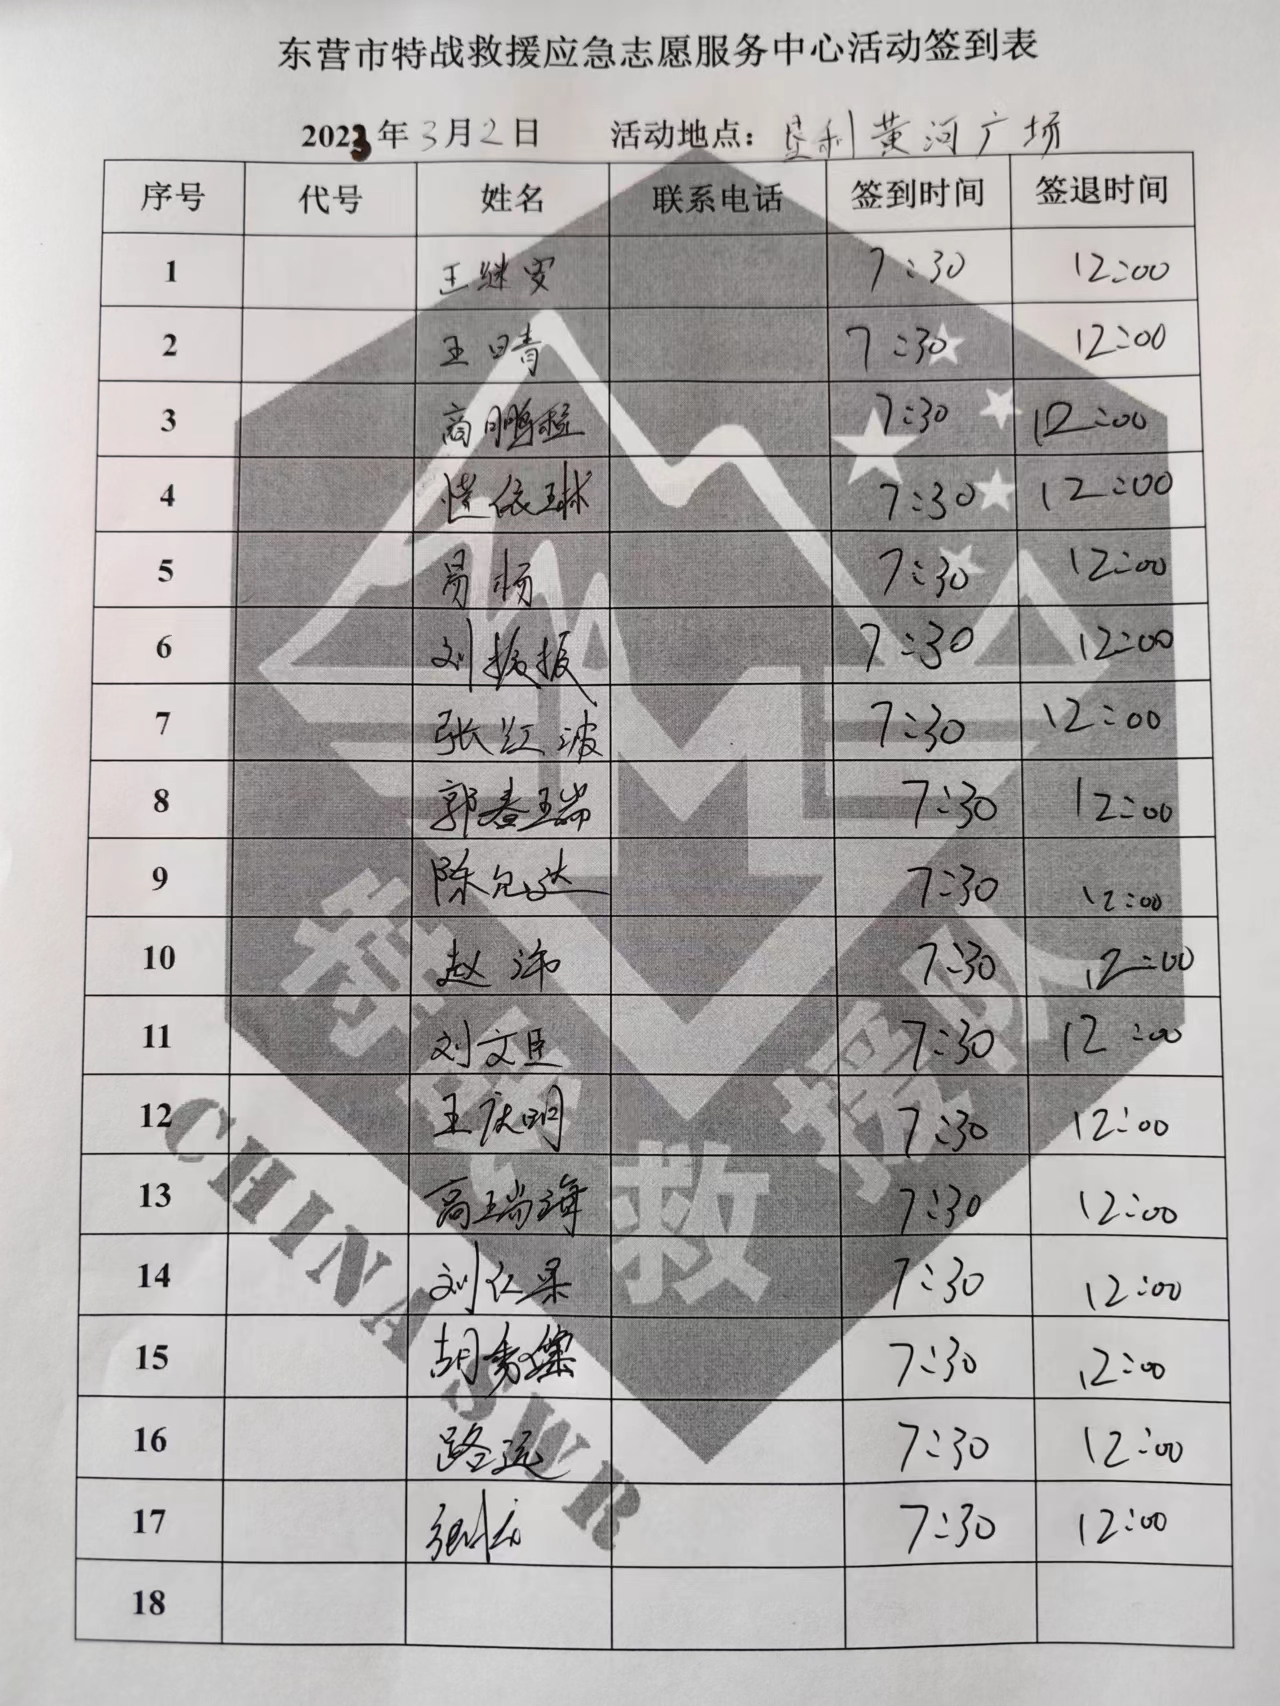 东营市特战救援应急志愿服务中心活动签到表
2023年3月2日 活动地点：垦利黄河广场
序号 代号 姓名 联系电话 签到时间 签退时间
1 王继安 7:30 12:00
2 王晴 7:30 12:00
3 商鹏程 7:30 12:00
4 依琳 7:30 12:00
5 杨 7:30 12:00
6 刘振振 7:30 12:00
7 张红波 7:30 12:00
8 郭春瑞 7:30 12:00
9 陈允达 7:30 12:00
10 赵沛 7:30 12:00
11 刘文臣 7:30 12:00
12 王庆明 7:30 12:00
13 高瑞海 7:30 12:00
14 刘仁杲 7:30 12:00
15 胡秀 7:30 12:00
16 路远 7:30 12:00
17 7:30 12:00
18
特战救援队
CHINA SWR